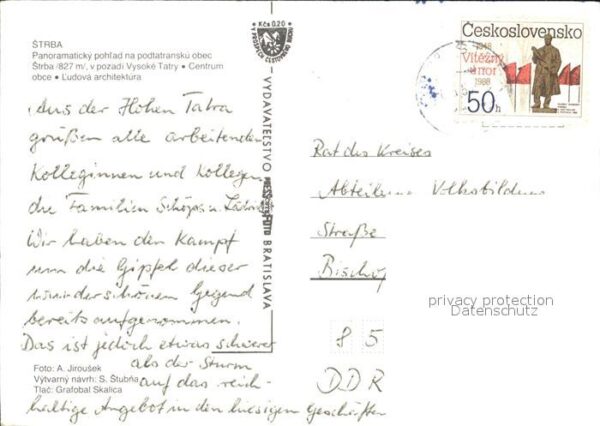 ŠTRBA
Panoramatický pohľad na podtatranskú obec
Štrba /827 m/, v pozadí Vysoké Tatry • Centrum
obce • Ľudová architektúra
Kčs 0,20
VYDAVATEĽSTVO
FOTO BRATISLAVA
Československo
1948
Vítězný
únor
1988
50h
Aus der Hohen Tatra
grüßen alle arbeitenden
Kolleginnen und Kollegen
die Familien
Wir haben den Kampf
um die Gipfel dieser
wunderschönen Gegend
bereits aufgenommen.
Das ist jedoch etwas schwerer
als der Sturm
auf das reich-
haltige Angebot in den hiesigen Geschäften
Foto: A. Jiroušek
Výtvarný návrh: S. Štubňa
Tlač: Grafobal Skalica
Rat des Kreises
Abteilung Volksbildung
Straße
Bischof
85
DDR
privacy protection
Datenschutz